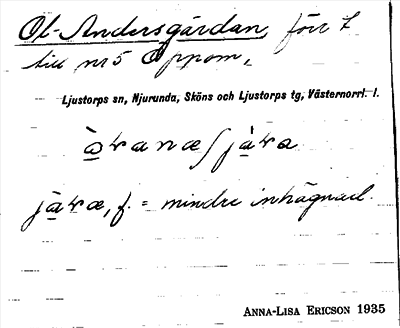 Ol-Andersgärdan, förr t
till nr 5 Öppom,
Ljustorps sn, Njurunda, Sköns och Ljustorps tg, Västernorrl. l.
jàræ, f. = mindre inhägnad.
ANNA-LISA ERICSON 1935